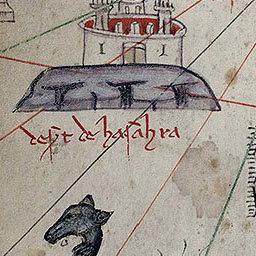 desert de hasahra